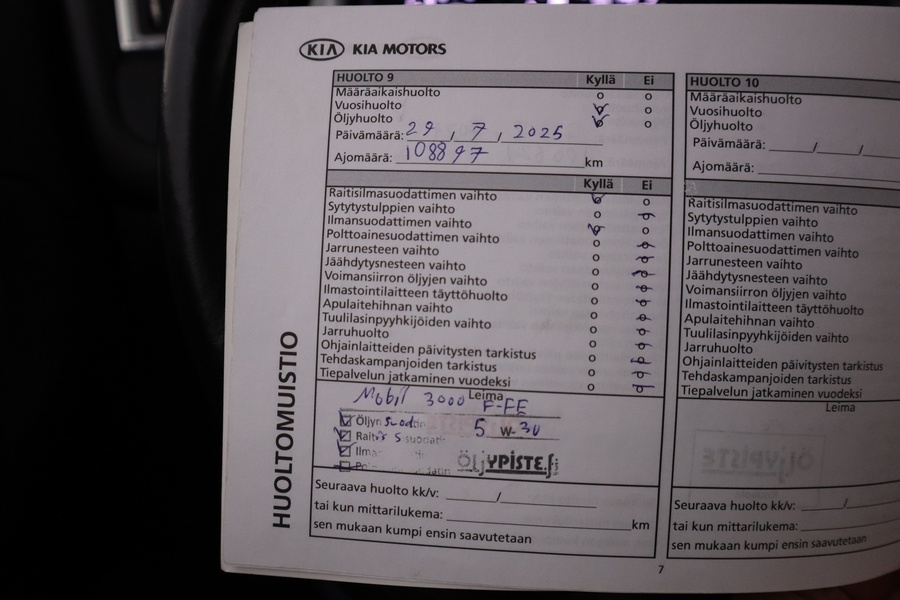 KIA KIA MOTORS
HUOLTO 9 Kyllä Ei
Määräaikaishuolto o o
Vuosihuolto o
Öljyhuolto o
Päivämäärä: 29 / 7 / 2025
Ajomäärä: 108897 km
Kyllä Ei
Raitisilmasuodattimen vaihto o
Sytytystulppien vaihto o
Ilmansuodattimen vaihto
Polttoainesuodattimen vaihto o
Jarrunesteen vaihto o
Jäähdytysnesteen vaihto o
Voimansiirron öljyjen vaihto o
Ilmastointilaitteen täyttöhuolto o
Apulaitehihnan vaihto o
Tuulilasinpyyhkijöiden vaihto o
Jarruhuolto o
Ohjainlaitteiden päivitysten tarkistus o
Tehdaskampanjoiden tarkistus o
Tiepalvelun jatkaminen vuodeksi o
Leima
Mobil 3000 F-FE
5 W- 30
ÖljYPISTE.fi
Seuraava huolto kk/v: /
tai kun mittarilukema: km
sen mukaan kumpi ensin saavutetaan
HUOLTOMUISTIO
7
HUOLTO 10
Määräaikaishuolto
Vuosihuolto
Öljyhuolto
Päivämäärä: / /
Ajomäärä:
Raitisilmasuodattimen vaihto
Sytytystulppien vaihto
Ilmansuodattimen vaihto
Polttoainesuodattimen vaihto
Jarrunesteen vaihto
Jäähdytysnesteen vaihto
Voimansiirron öljyjen vaihto
Ilmastointilaitteen täyttöhuolto
Apulaitehihnan vaihto
Tuulilasinpyyhkijöiden vaihto
Jarruhuolto
Ohjainlaitteiden päivitysten tarkistus
Tehdaskampanjoiden tarkistus
Tiepalvelun jatkaminen vuodeksi
Leima
Seuraava huolto kk/v: /
tai kun mittarilukema:
sen mukaan kumpi ensin saavutetaan